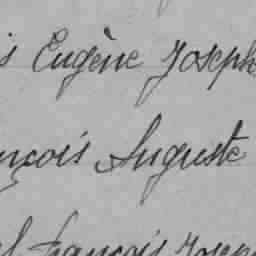 is Eugène Joseph
nçois Auguste
el françois Josep